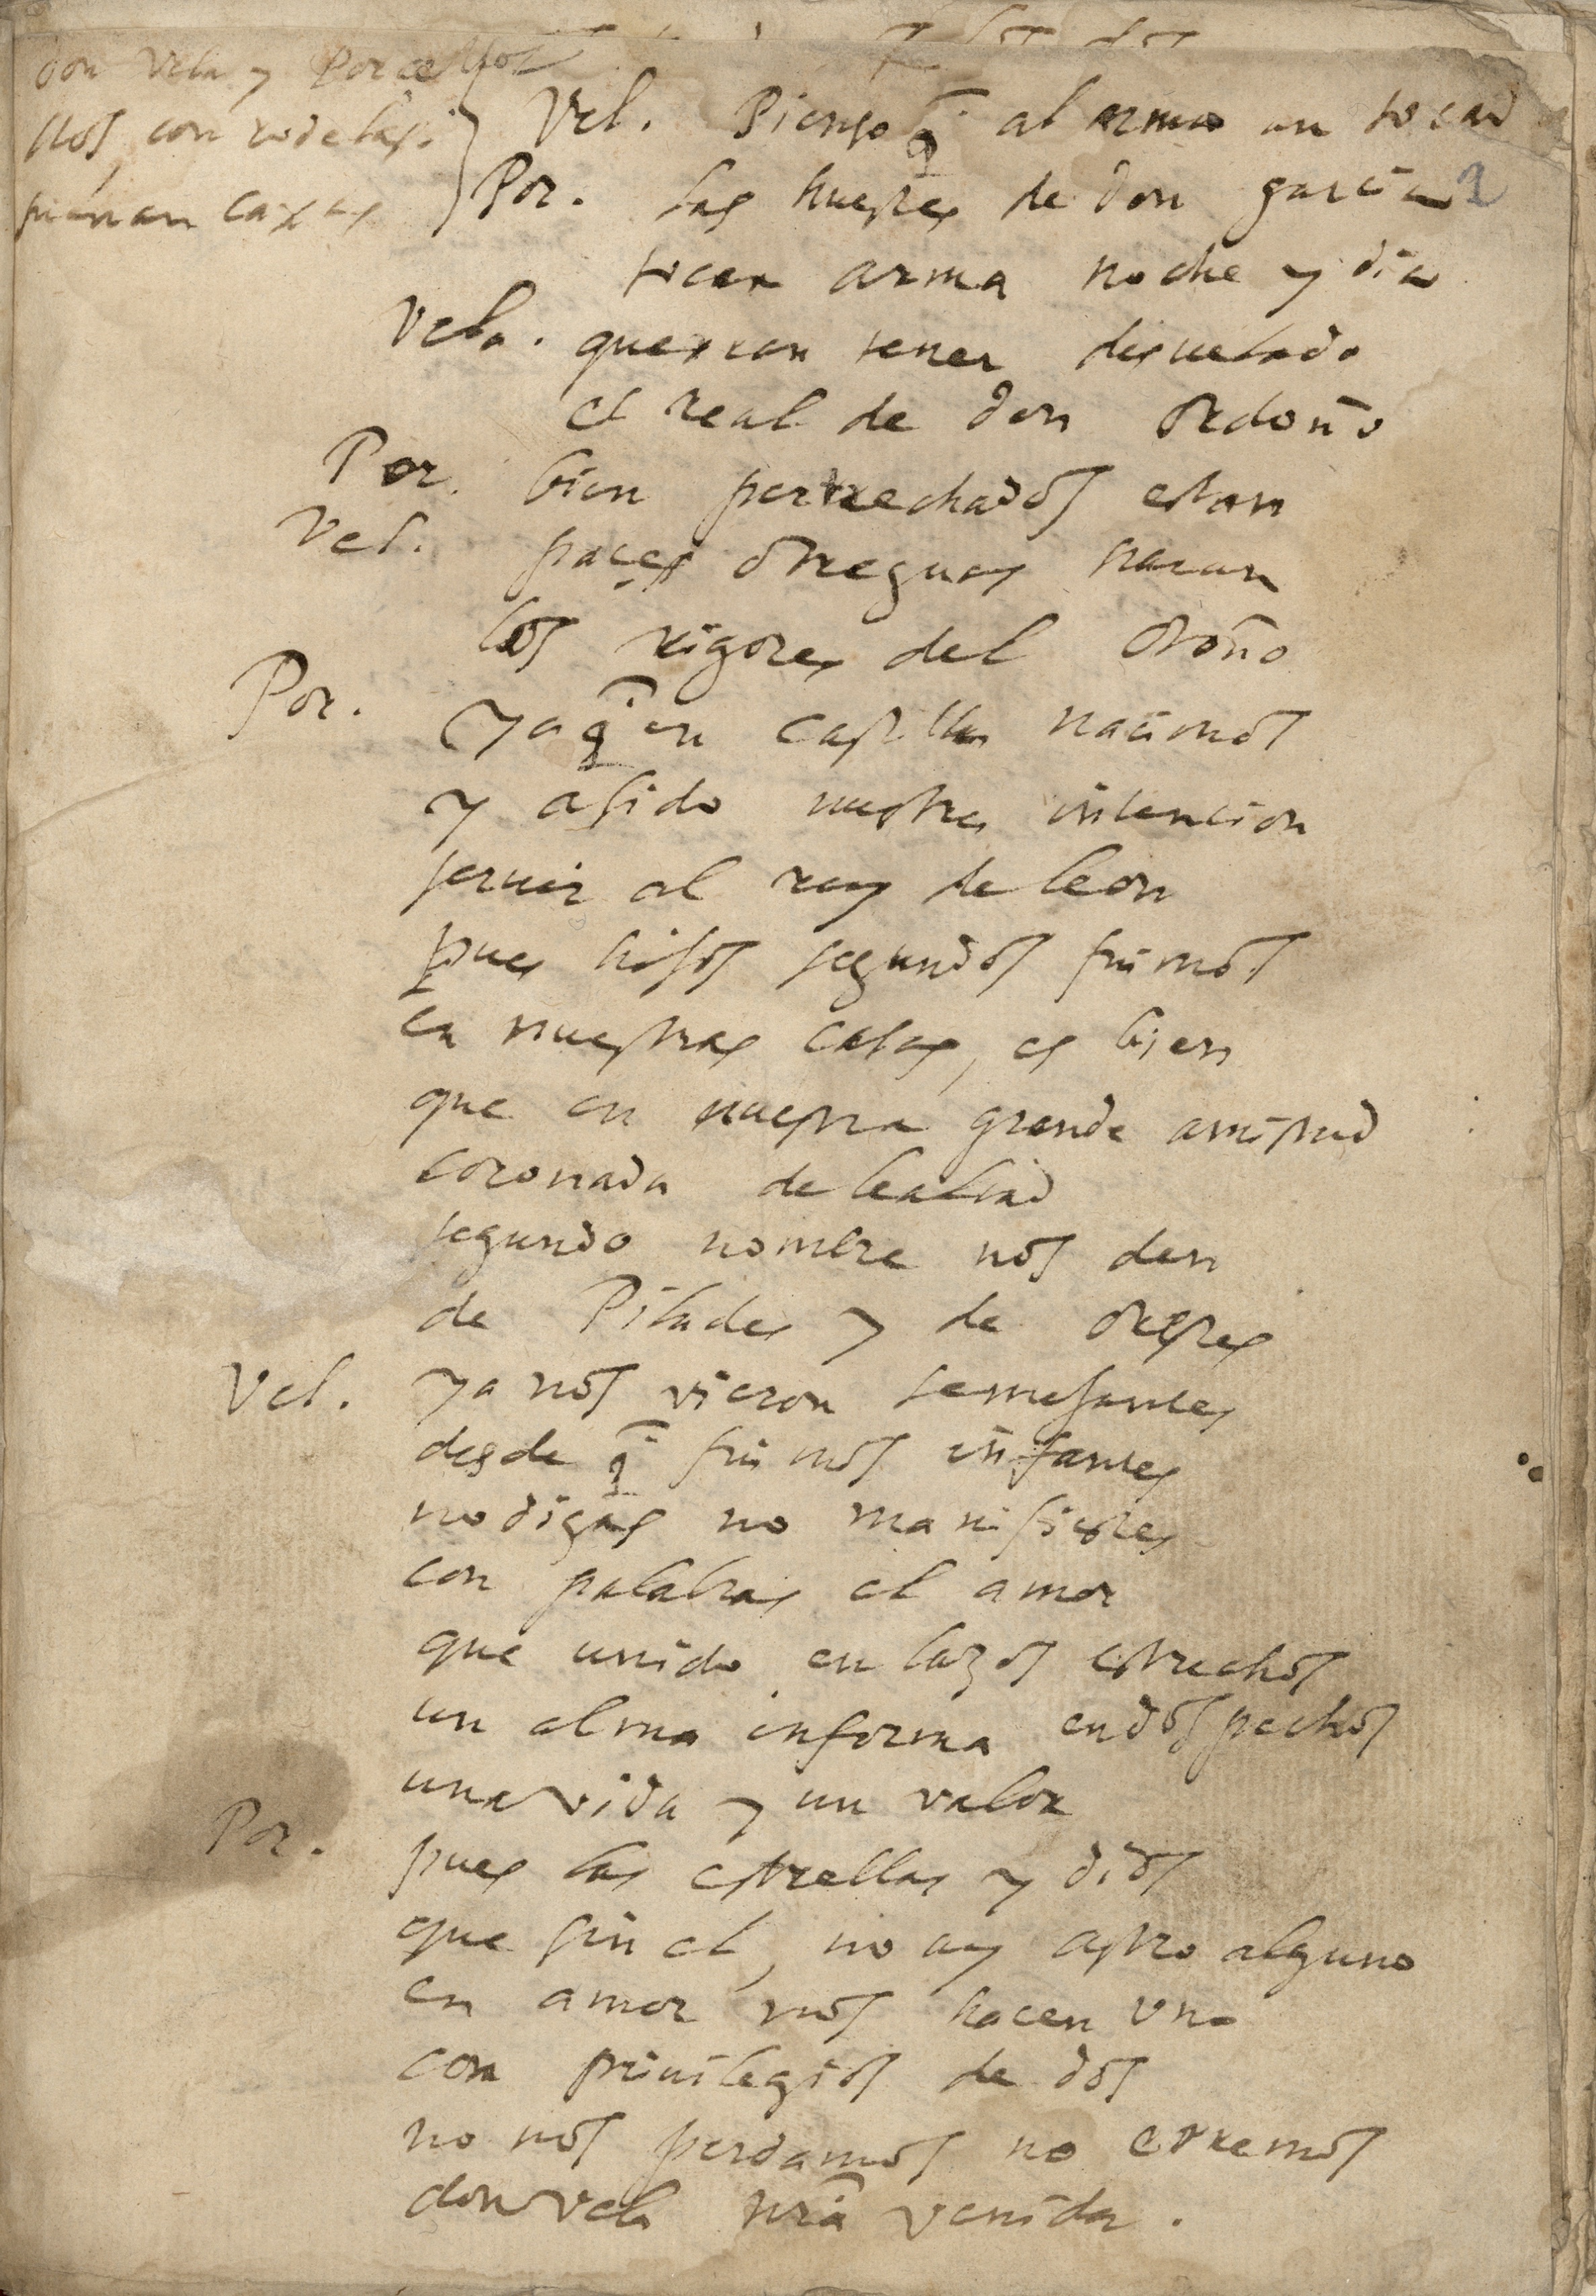 los dos
don Vela y Porcellos
llos con rodelas.
suenan caxas
Vel. Pienso q̄ al arma an tocado
Por. las huestes de don garcia
tocan arma noche y dia
Vela. querran tener desuelado
el real de don Ordoño
Por. bien pertrechados estan
Vel. paces o treguas haran
los rigores del otoño
Por. ya q̄ en castilla nacimos
y asido nuestra intencion
seruir al rey de leon
pues hijos segundos fuimos
en nuestras casas, es bien
que en nuestra grande amistad
coronada de lealtad
segundo nombre nos den
de Pilades y de orestes
Vel. ya nos vieron semejantes
desde q̄ fuimos infantes
no digas no manifiestes
con palabras el amor
que unido en lazos estrechos
un alma informa en dos pechos
una vida y un valor
Por. pues las estrellas y dios
que sin el, no ay astro alguno
en amor nos hacen uno
con priuilegios de dos
no nos perdamos no erremos
don vela nr̄a venida.